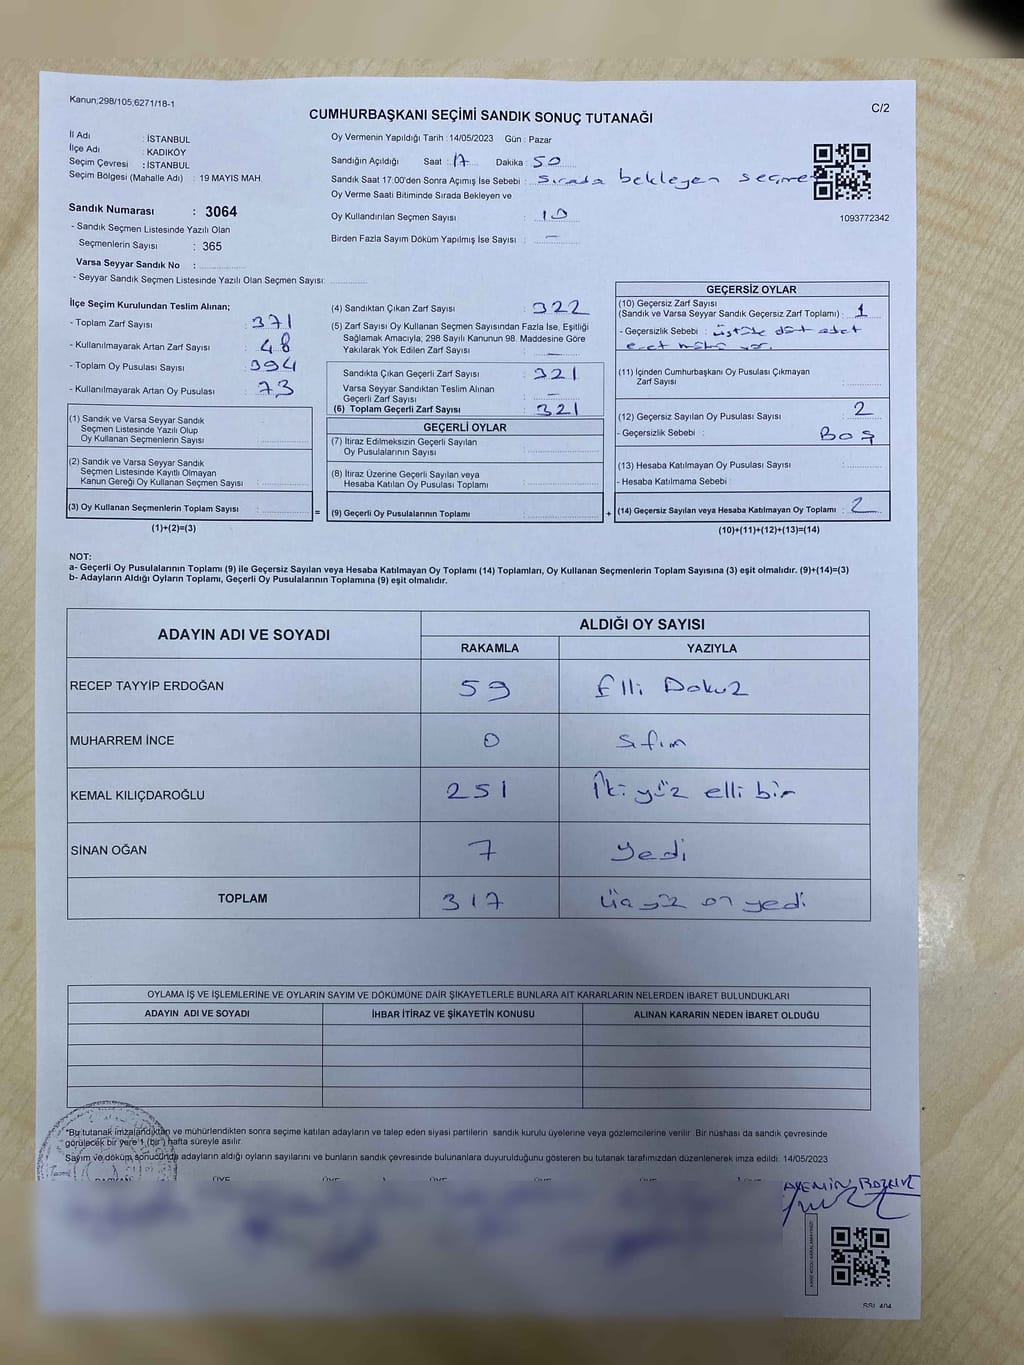 Kanun;298/105;6271/18-1
C/2
CUMHURBAŞKANI SEÇİMİ SANDIK SONUÇ TUTANAĞI
İl Adı : İSTANBUL
İlçe Adı : KADIKÖY
Seçim Çevresi : İSTANBUL
Seçim Bölgesi (Mahalle Adı) : 19 MAYIS MAH.
Sandık Numarası : 3064
- Sandık Seçmen Listesinde Yazılı Olan
Seçmenlerin Sayısı : 365
Varsa Seyyar Sandık No :
- Seyyar Sandık Seçmen Listesinde Yazılı Olan Seçmen Sayısı:
Oy Vermenin Yapıldığı Tarih : 14/05/2023 Gün : Pazar
Sandığın Açıldığı Saat : 17 Dakika : 50
Sandık Saat 17:00'den Sonra Açımış İse Sebebi : Sırada bekleyen seçmen
Oy Verme Saati Bitiminde Sırada Bekleyen ve
Oy Kullandırılan Seçmen Sayısı : 10
Birden Fazla Sayım Döküm Yapılmış İse Sayısı : —
1093772342
İlçe Seçim Kurulundan Teslim Alınan;
- Toplam Zarf Sayısı : 371
- Kullanılmayarak Artan Zarf Sayısı : 48
- Toplam Oy Pusulası Sayısı : 394
- Kullanılmayarak Artan Oy Pusulası : 73
(1) Sandık ve Varsa Seyyar Sandık
Seçmen Listesinde Yazılı Olup
Oy Kullanan Seçmenlerin Sayısı :
(2) Sandık ve Varsa Seyyar Sandık
Seçmen Listesinde Kayıtlı Olmayan
Kanun Gereği Oy Kullanan Seçmen Sayısı :
(3) Oy Kullanan Seçmenlerin Toplam Sayısı :
(1)+(2)=(3)
(4) Sandıktan Çıkan Zarf Sayısı : 322
(5) Zarf Sayısı Oy Kullanan Seçmen Sayısından Fazla İse, Eşitliği
Sağlamak Amacıyla; 298 Sayılı Kanunun 98. Maddesine Göre
Yakılarak Yok Edilen Zarf Sayısı : —
Sandıkta Çıkan Geçerli Zarf Sayısı : 321
Varsa Seyyar Sandıktan Teslim Alınan
Geçerli Zarf Sayısı : —
(6) Toplam Geçerli Zarf Sayısı : 321
GEÇERLİ OYLAR
(7) İtiraz Edilmeksizin Geçerli Sayılan
Oy Pusulalarının Sayısı :
(8) İtiraz Üzerine Geçerli Sayılan veya
Hesaba Katılan Oy Pusulası Toplamı :
= (9) Geçerli Oy Pusulalarının Toplamı : +
GEÇERSİZ OYLAR
(10) Geçersiz Zarf Sayısı
(Sandık ve Varsa Seyyar Sandık Geçersiz Zarf Toplamı) : 1
- Geçersizlik Sebebi : üstüde dört adet
evet mührü var.
(11) İçinden Cumhurbaşkanı Oy Pusulası Çıkmayan
Zarf Sayısı :
(12) Geçersiz Sayılan Oy Pusulası Sayısı : 2
- Geçersizlik Sebebi : Boş
(13) Hesaba Katılmayan Oy Pusulası Sayısı :
- Hesaba Katılmama Sebebi :
(14) Geçersiz Sayılan veya Hesaba Katılmayan Oy Toplamı : 2
(10)+(11)+(12)+(13)=(14)
NOT:
a- Geçerli Oy Pusulalarının Toplamı (9) ile Geçersiz Sayılan veya Hesaba Katılmayan Oy Toplamı (14) Toplamları, Oy Kullanan Seçmenlerin Toplam Sayısına (3) eşit olmalıdır. (9)+(14)=(3)
b- Adayların Aldığı Oyların Toplamı, Geçerli Oy Pusulalarının Toplamına (9) eşit olmalıdır.
ADAYIN ADI VE SOYADI ALDIĞI OY SAYISI
RAKAMLA YAZIYLA
RECEP TAYYİP ERDOĞAN 59 Elli Dokuz
MUHARREM İNCE 0 Sıfır
KEMAL KILIÇDAROĞLU 251 İki yüz elli bir
SİNAN OĞAN 7 Yedi
TOPLAM 317 üç yüz on yedi
OYLAMA İŞ VE İŞLEMLERİNE VE OYLARIN SAYIM VE DÖKÜMÜNE DAİR ŞİKAYETLERLE BUNLARA AİT KARARLARIN NELERDEN İBARET BULUNDUKLARI
ADAYIN ADI VE SOYADI İHBAR İTİRAZ VE ŞİKAYETİN KONUSU ALINAN KARARIN NEDEN İBARET OLDUĞU
*Bu tutanak imzalandıktan ve mühürlendikten sonra seçime katılan adayların ve talep eden siyasi partilerin sandık kurulu üyelerine veya gözlemcilerine verilir. Bir nüshası da sandık çevresinde
görülecek bir yere 1 (bir) hafta süreyle asılır.
Sayım ve döküm sonucunda adayların aldığı oyların sayılarını ve bunların sandık çevresinde bulunanlara duyurulduğunu gösteren bu tutanak tarafımızdan düzenlenerek imza edildi. 14/05/2023